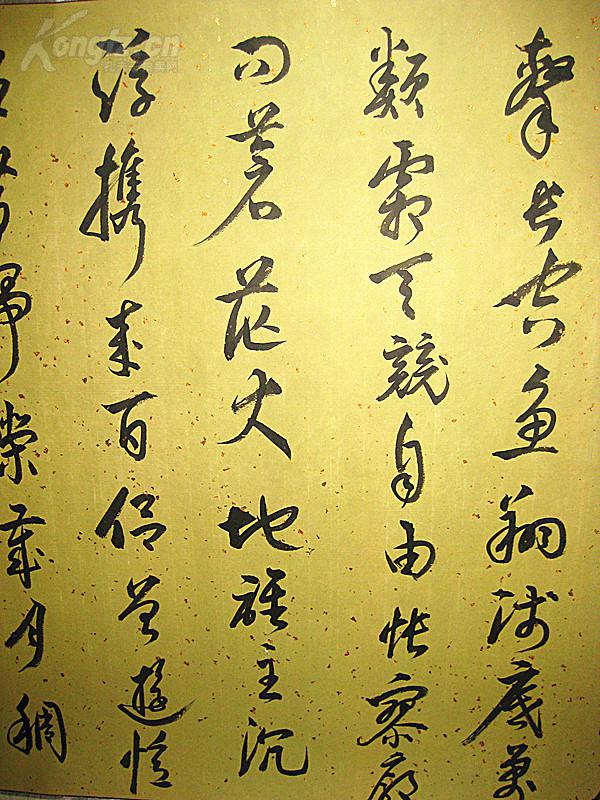 擊長空魚翔淺底萬
類霜天競自由悵寥廓
問蒼茫大地誰主沉
浮攜來百侶曾遊憶
往昔崢嶸歲月稠
Kongfz.cn